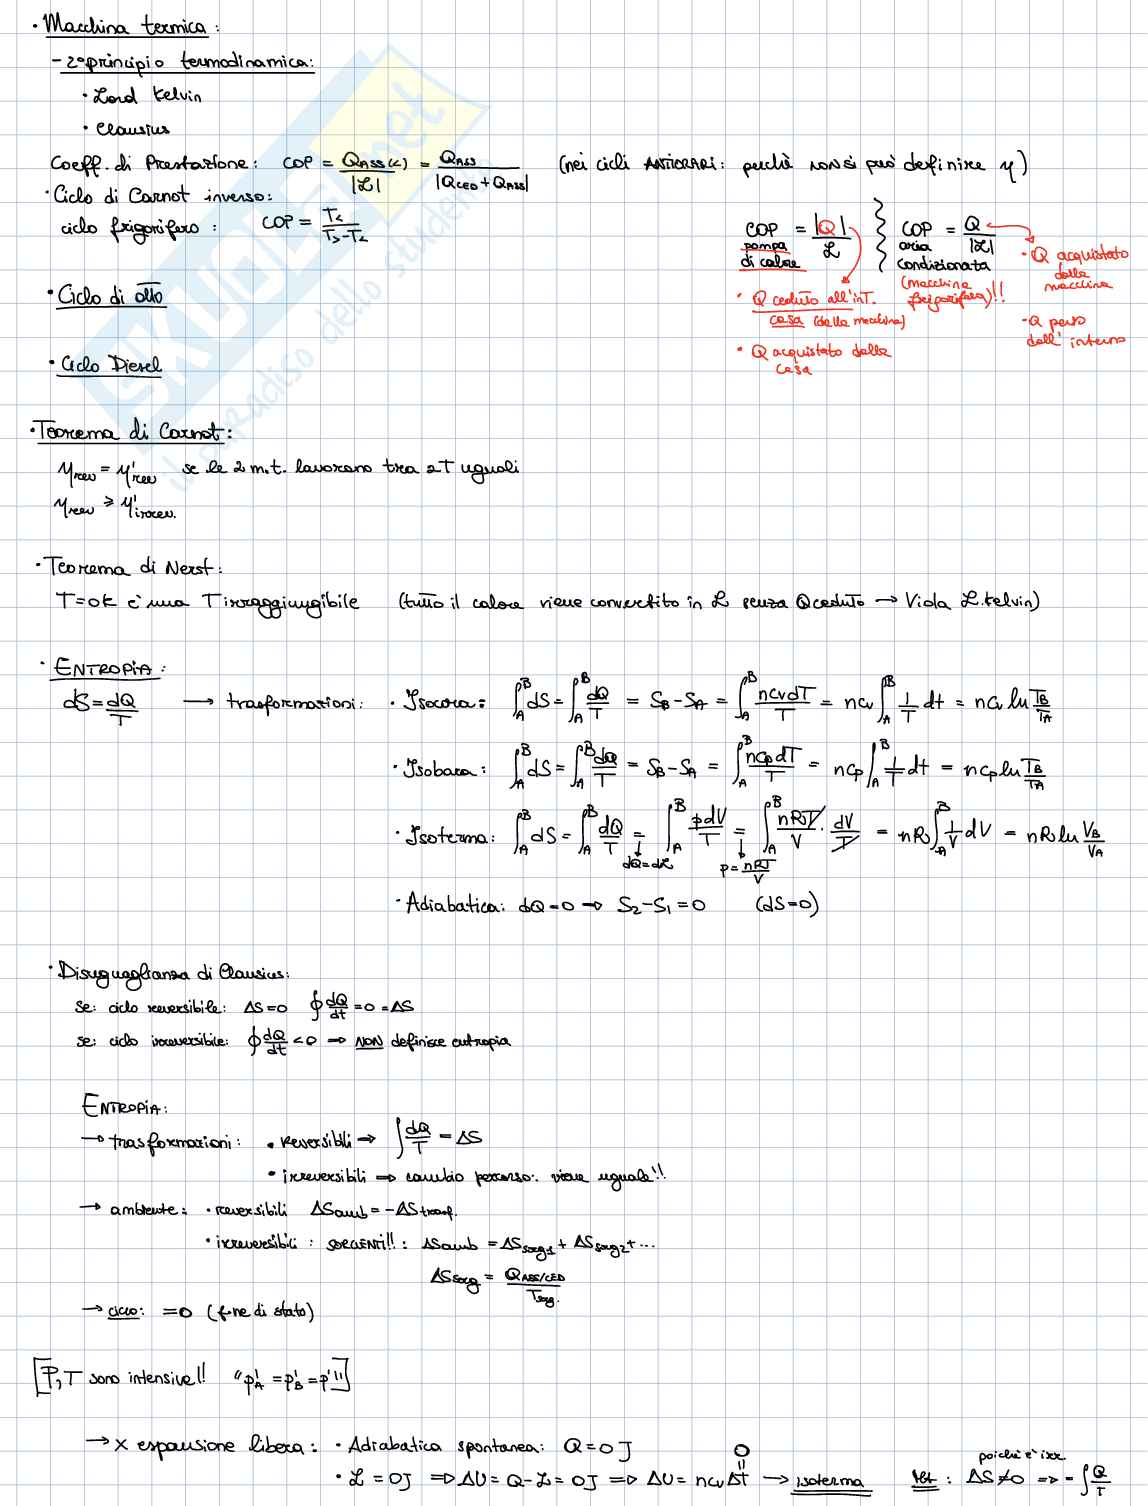 · Macchina termica :
- 2° principio termodinamica:
· Lord Kelvin
· Clausius
Coeff. di Prestazione: COP = Q_ASS(2) / |ℒ| = Q_ASS / |Q_CED + Q_ASS| (nei cicli ANTIORARI: perchè non si può definire η)
· Ciclo di Carnot inverso:
ciclo frigorifero : COP = T_2 / T_3 - T_2
COP pompa di calore = |Q| / ℒ
· Q ceduto all'int. casa (dalla macchina)
· Q acquistato dalla casa
COP aria condizionata (macchina frigorifera)!! = Q / |ℒ|
· Q acquistato dalla macchina
· Q perso dall'interno
· Ciclo di Otto
· Ciclo Diesel
· Teorema di Carnot :
η_rev = η'_rev se le 2 m.t. lavorano tra 2T uguali
η_rev ≥ η'_irrev.
· Teorema di Nerst :
T=0K è una T irraggiungibile (tutto il calore viene convertito in ℒ senza Q ceduto → Viola L.Kelvin)
· ENTROPIA :
dS = dQ/T → trasformazioni: · Isocora: ∫_A^B dS = ∫_A^B dQ/T = S_B - S_A = ∫_A^B ncvdT/T = ncv ∫_A^B 1/T dt = ncv ln T_B/T_A
· Isobara: ∫_A^B dS = ∫_A^B dQ/T = S_B - S_A = ∫_A^B ncpdT/T = ncp ∫_A^B 1/T dt = ncp ln T_B/T_A
· Isoterma: ∫_A^B dS = ∫_A^B dQ/T = ∫_A^B pdV/T = ∫_A^B nRT/V · dV/T = nR ∫_A^B 1/V dV = nR ln V_B/V_A
dQ=dℒ p = nRT/V
· Adiabatica: dQ=0 → S_2 - S_1 = 0 (dS=0)
· Disuguaglianza di Clausius:
se: ciclo reversibile: ΔS=0 ∮ dQ/dt = 0 = ΔS
se: ciclo irreversibile: ∮ dQ/dt < 0 ⇒ NON definisce entropia
ENTROPIA:
→ trasformazioni: · reversibili ⇒ ∫ dQ/T = ΔS
· irreversibili ⇒ cambio percorso: viene uguale!!
→ ambiente: · reversibili ΔS_amb = -ΔS_trasf.
· irreversibili : SORGENTI!! : ΔS_amb = ΔS_sorg1 + ΔS_sorg2 + ...
ΔS_sorg = Q_ASS/CED / T_sorg.
→ ciclo: = 0 (f.ne di stato)
[P, T sono intensive!! "p'_A = p'_B = p'"]
→ x espansione libera : · Adiabatica spontanea: Q = 0 J
· ℒ = 0J ⇒ ΔU = Q - ℒ = 0J ⇒ ΔU = ncv Δt → isoterma : ΔS ≠ 0 ⇒ - ∫ Q/T
0
poichè è irr
SKUOLA.net
il paradiso dello studente